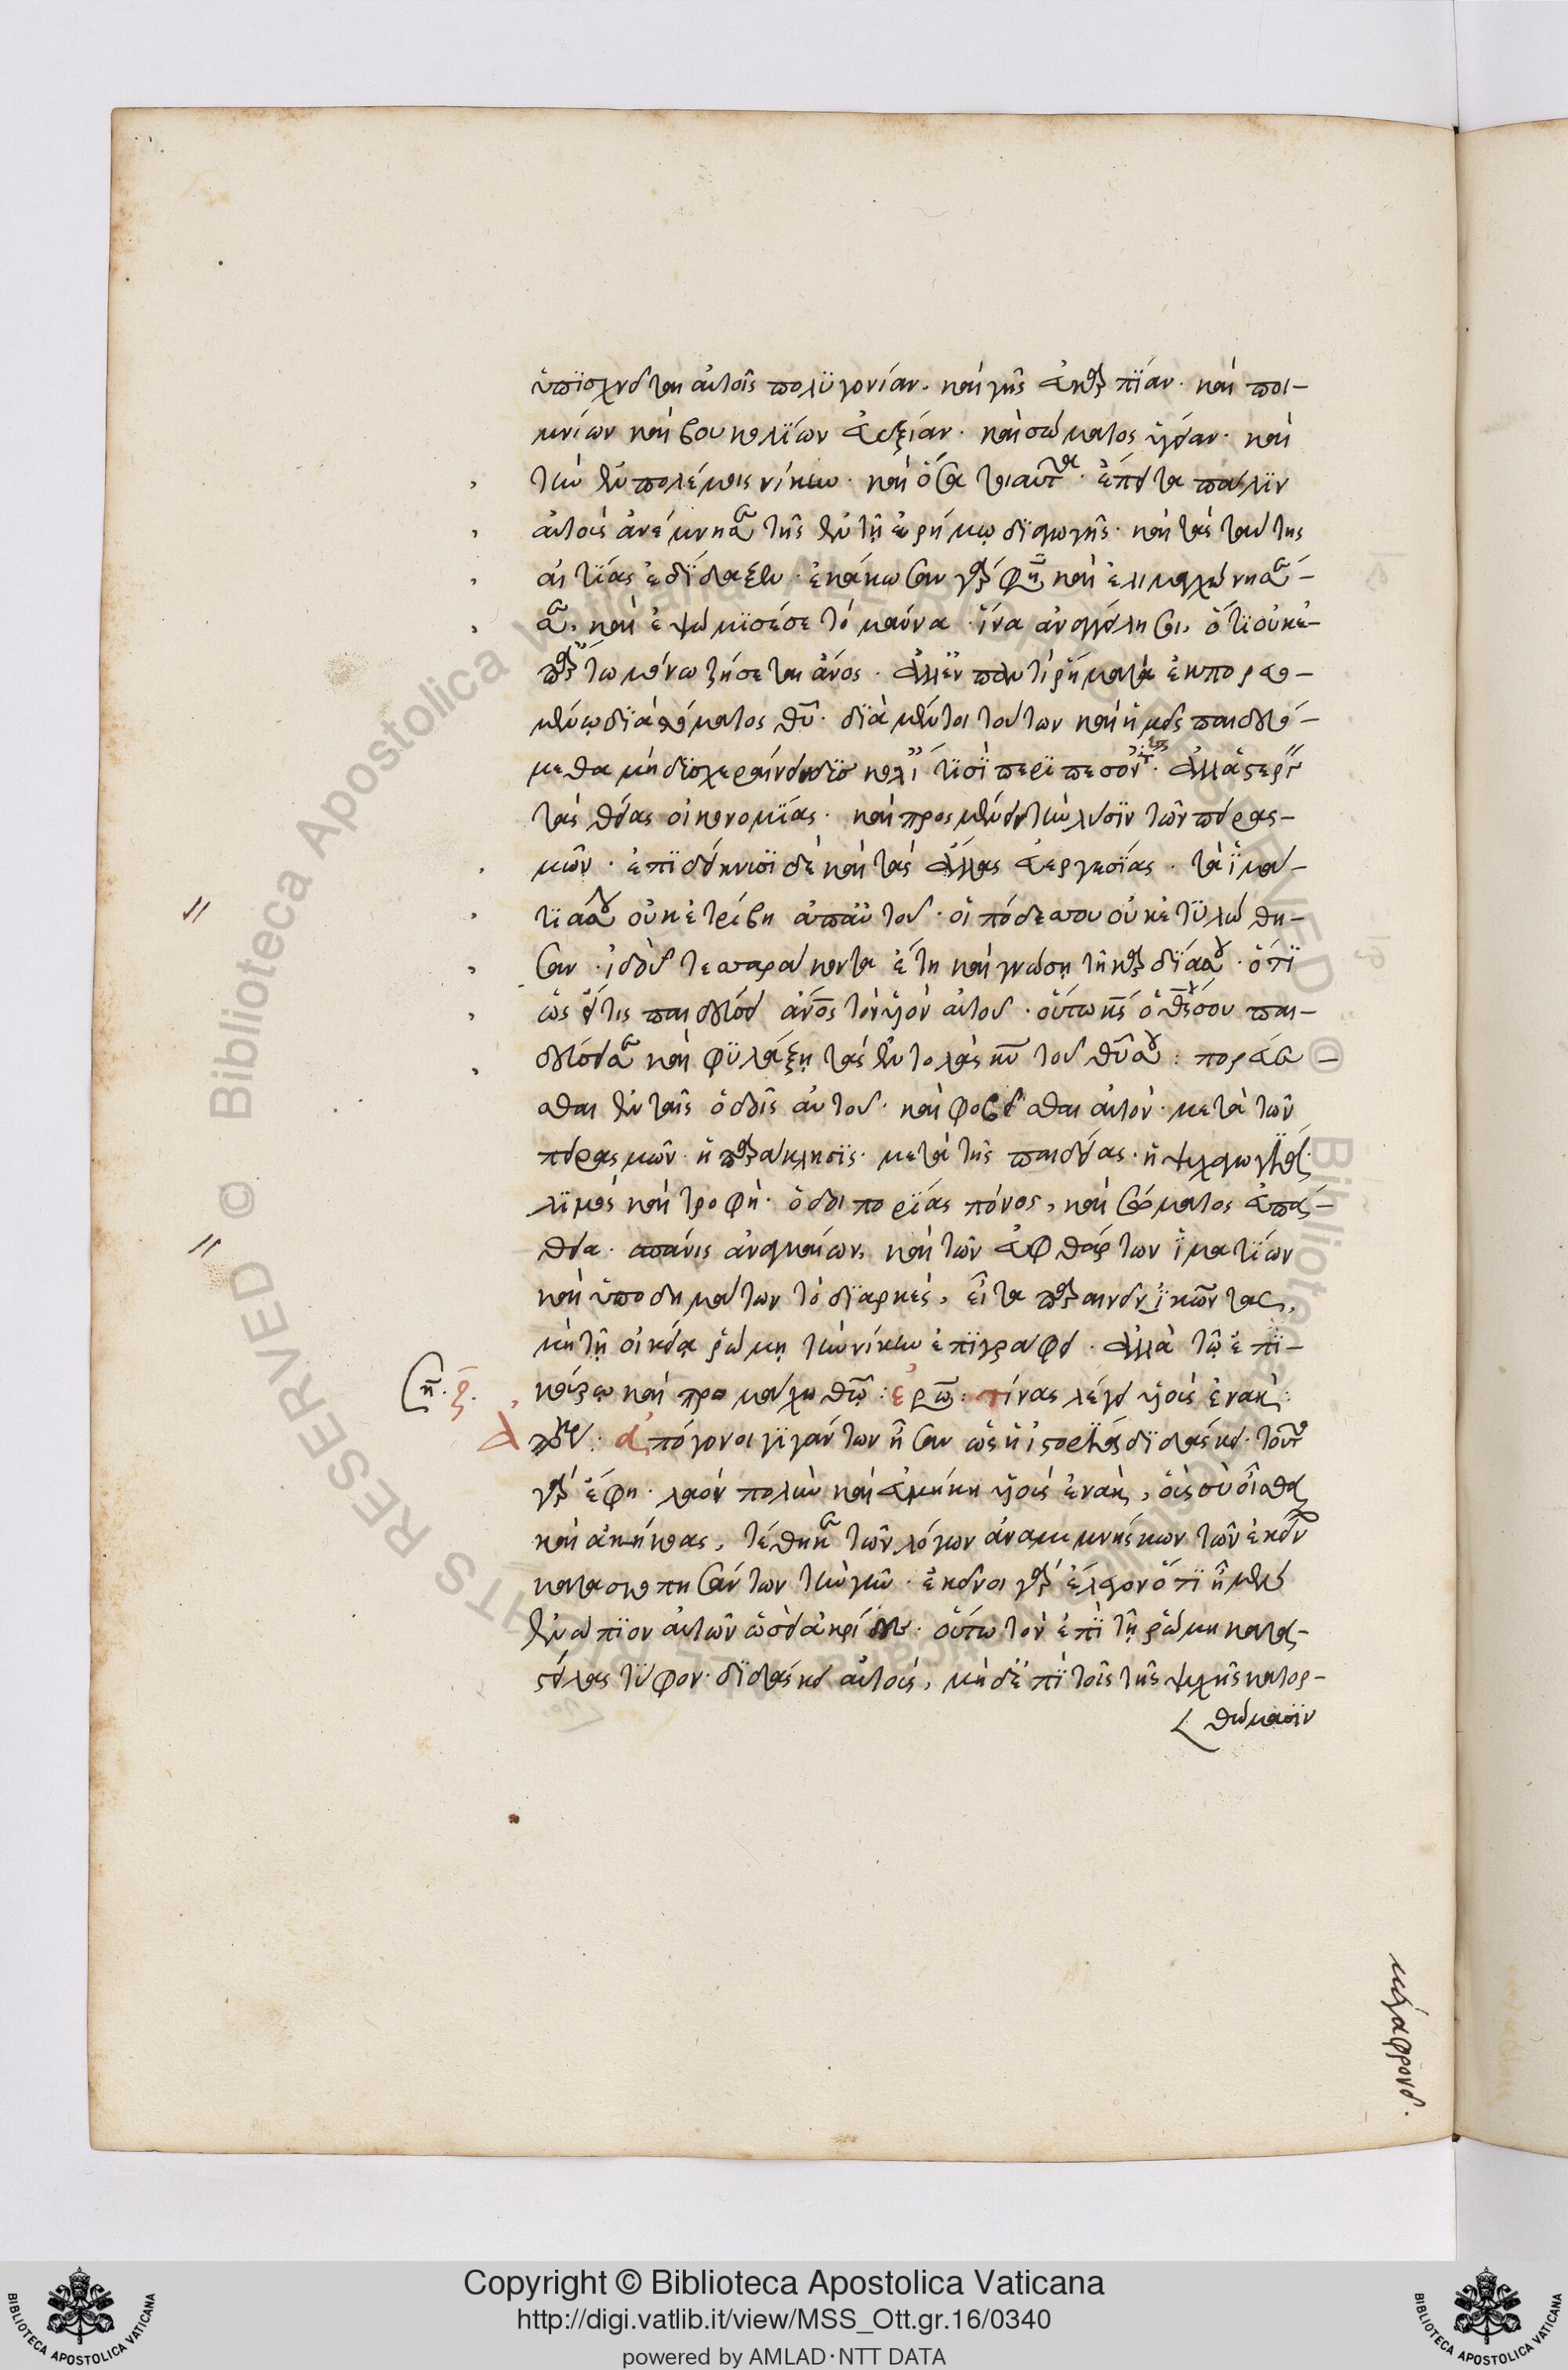 ὑπισχνεῖται αὐτοῖς πολυγονίαν. καὶ γῆς εὐκαρπίαν. καὶ ποι-
μνίων καὶ βουκολίων εὐεξίαν. καὶ σώματος ὑγείαν. καὶ
τὴν ἐν πολέμοις νίκην. καὶ ὅσα τοιαῦτα. ἔπειτα πάλιν
αὐτοὺς ἀνέμνησε τῆς ἐν τῇ ἐρήμῳ διαγωγῆς. καὶ τὰς ταύτης
αἰτίας ἐδίδαξεν. ἐκάκωσεν γάρ φησι καὶ ἐλιμαγχόνησέ-
σε. καὶ ἐψώμισέ σε τὸ μάννα. ἵνα ἀναγγείλῃ σοι, ὅτι οὐκ ἐ-
π' ἄρτῳ μόνῳ ζήσεται ἄνος. ἀλλ' ἐν παντὶ ῥήματι ἐκπορευο-
μένῳ διὰ στόματος θυ. διὰ μέντοι τούτων καὶ ἡμεῖς παιδευό-
μεθα μὴ δυσχεραίνειν
τὰς θείας οἰκονομίας. καὶ προσμένειν τὴν λύσιν τῶν πειρασ-
μῶν. ἐπιδείκνυσι δὲ καὶ τὰς ἄλλας εὐεργεσίας. τὰ ἱμά-
τιά σου οὐκ ἐτρίβη ἀπὸ σοῦ. οἱ πόδες σου οὐκ ἐτυλώθη-
σαν. ἰδοὺ τεσσαράκοντα ἔτη καὶ γνώσῃ τῇ καρδίᾳ σου. ὅτι
ὡς εἴ τις παιδεύσει ἄνος τὸν υἱὸν αὐτοῦ. οὕτω κς ὁ θς σου παι-
δεύσει σε καὶ φυλάξῃ τὰς ἐντολὰς κυ τοῦ θυ σου: πορεύεσ-
θαι ἐν ταῖς ὁδοῖς αὐτοῦ. καὶ φοβεῖσθαι αὐτόν. μετὰ τῶν
πειρασμῶν ἡ παράκλησις. μετὰ τῆς παιδείας. ἡ ψυχαγωγία.
λιμὸς καὶ τροφή. ὁδοιπορίας πόνος, καὶ σώματος εὐπά-
θεια. σπάνις ἀναγκαίων, καὶ τῶν ἀφθάρτων ἱματίων
καὶ ὑποδημάτων τὸ διαρκές, εἶτα παραινεῖ νικῶντας,
μὴ τῇ οἰκείᾳ ῥώμῃ τὴν νίκην ἐπιγράφειν. ἀλλὰ τῷ ἐπι-
κούρῳ καὶ προμάχῳ θω: ἐρώ: τίνας λέγει υἱοὺς ἐνακ:
ἀπόκρ: ἀπόγονοι γιγάντων ἦσαν ὡς ἡ ἱστορία διδάσκει. τοῦτο
γὰρ ἔφη. λαὸν πολὺν καὶ εὐμήκη υἱοὺς ἐνακ, οὓς σὺ οἶσθα
καὶ ἀκήκοας, τέθηκε τῶν λόγων ἀναμιμνήσκων τῶν ἐκείνων
κατασκοπησάντων τὴν γῆν. ἐκεῖνοι γὰρ ἔλεγον ὅτι ἦμεν
ἐνώπιον αὐτῶν ὡσεὶ ἀκρίδες. οὕτω τὸν ἐπὶ τῇ ῥώμῃ κατα-
στείλας τύφον. διδάσκει αὐτούς, μηδ' ἐπὶ τοῖς τῆς ψυχῆς κατορ-
θώμασιν
μέγα φρονεῖ.
Copyright © Biblioteca Apostolica Vaticana
http://digi.vatlib.it/view/MSS_Ott.gr.16/0340
powered by AMLAD·NTT DATA